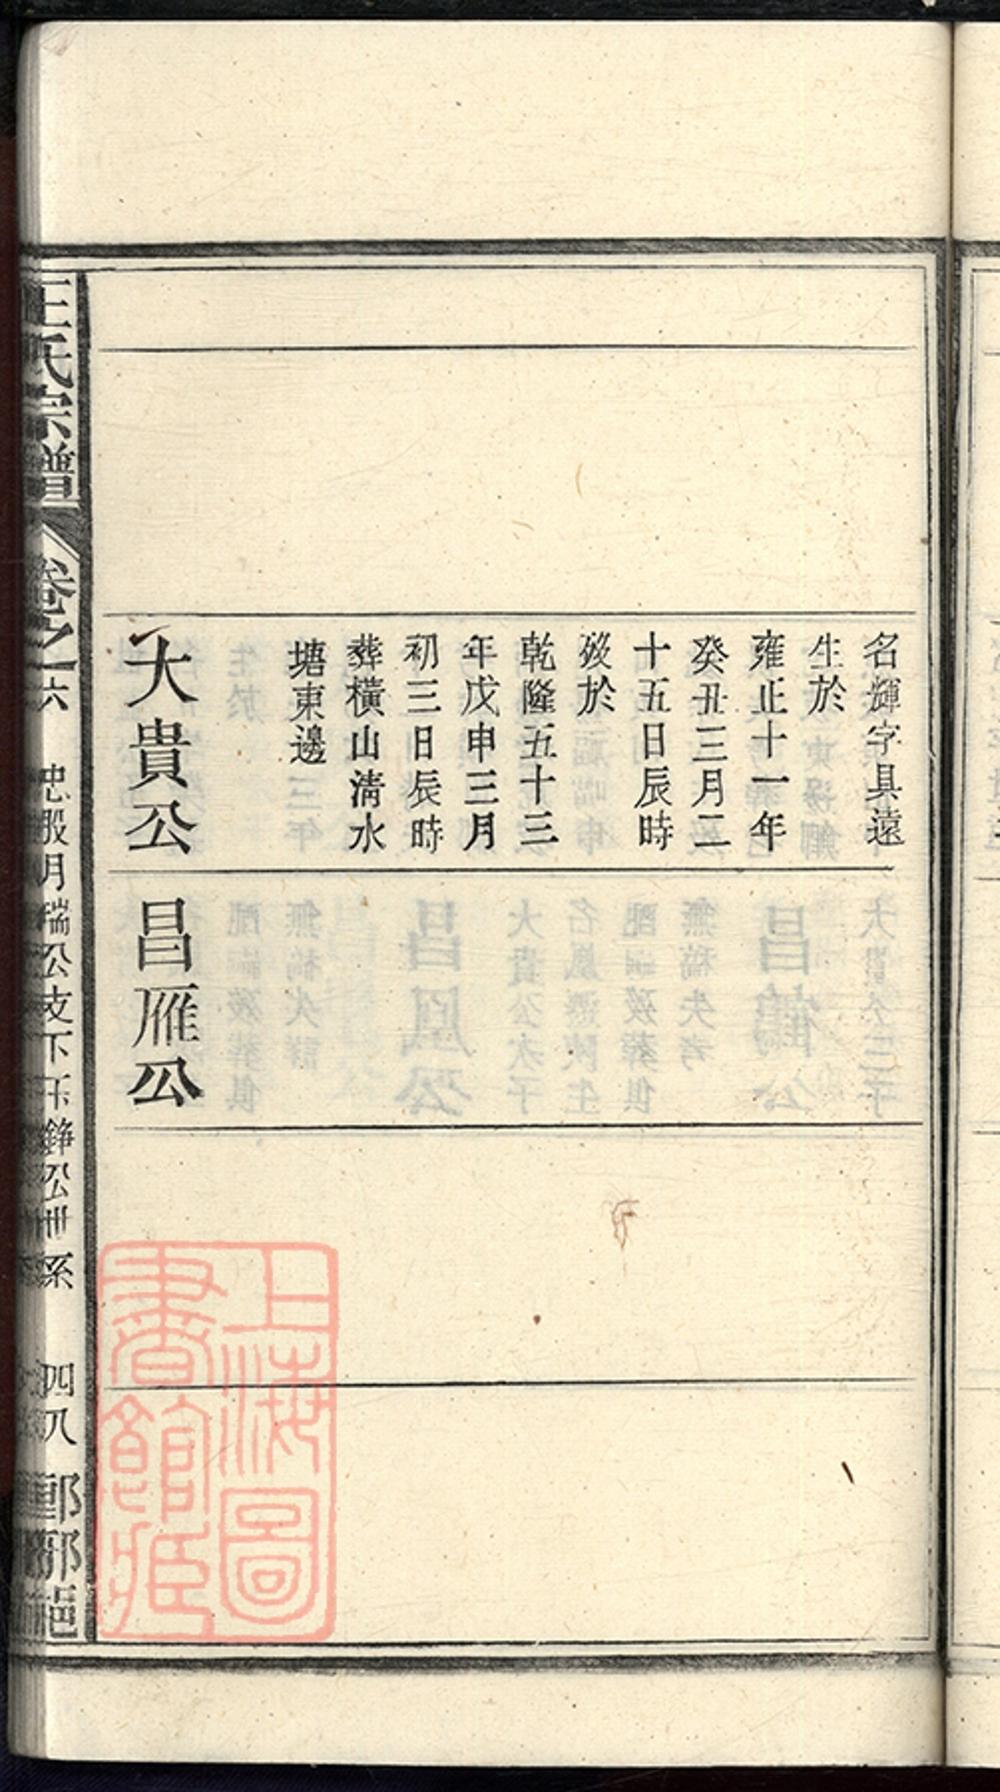 名輝字具遠
生於
雍正十一年
癸丑三月二
十五日辰時
歿於
乾隆五十三
年戊申三月
初三日辰時
葬橫山淸水
塘東邊
大貴公
昌雁公
王氏宗譜
卷之六
忠股月瑞公支下玉錚公世系
四八
上海圖
書館藏